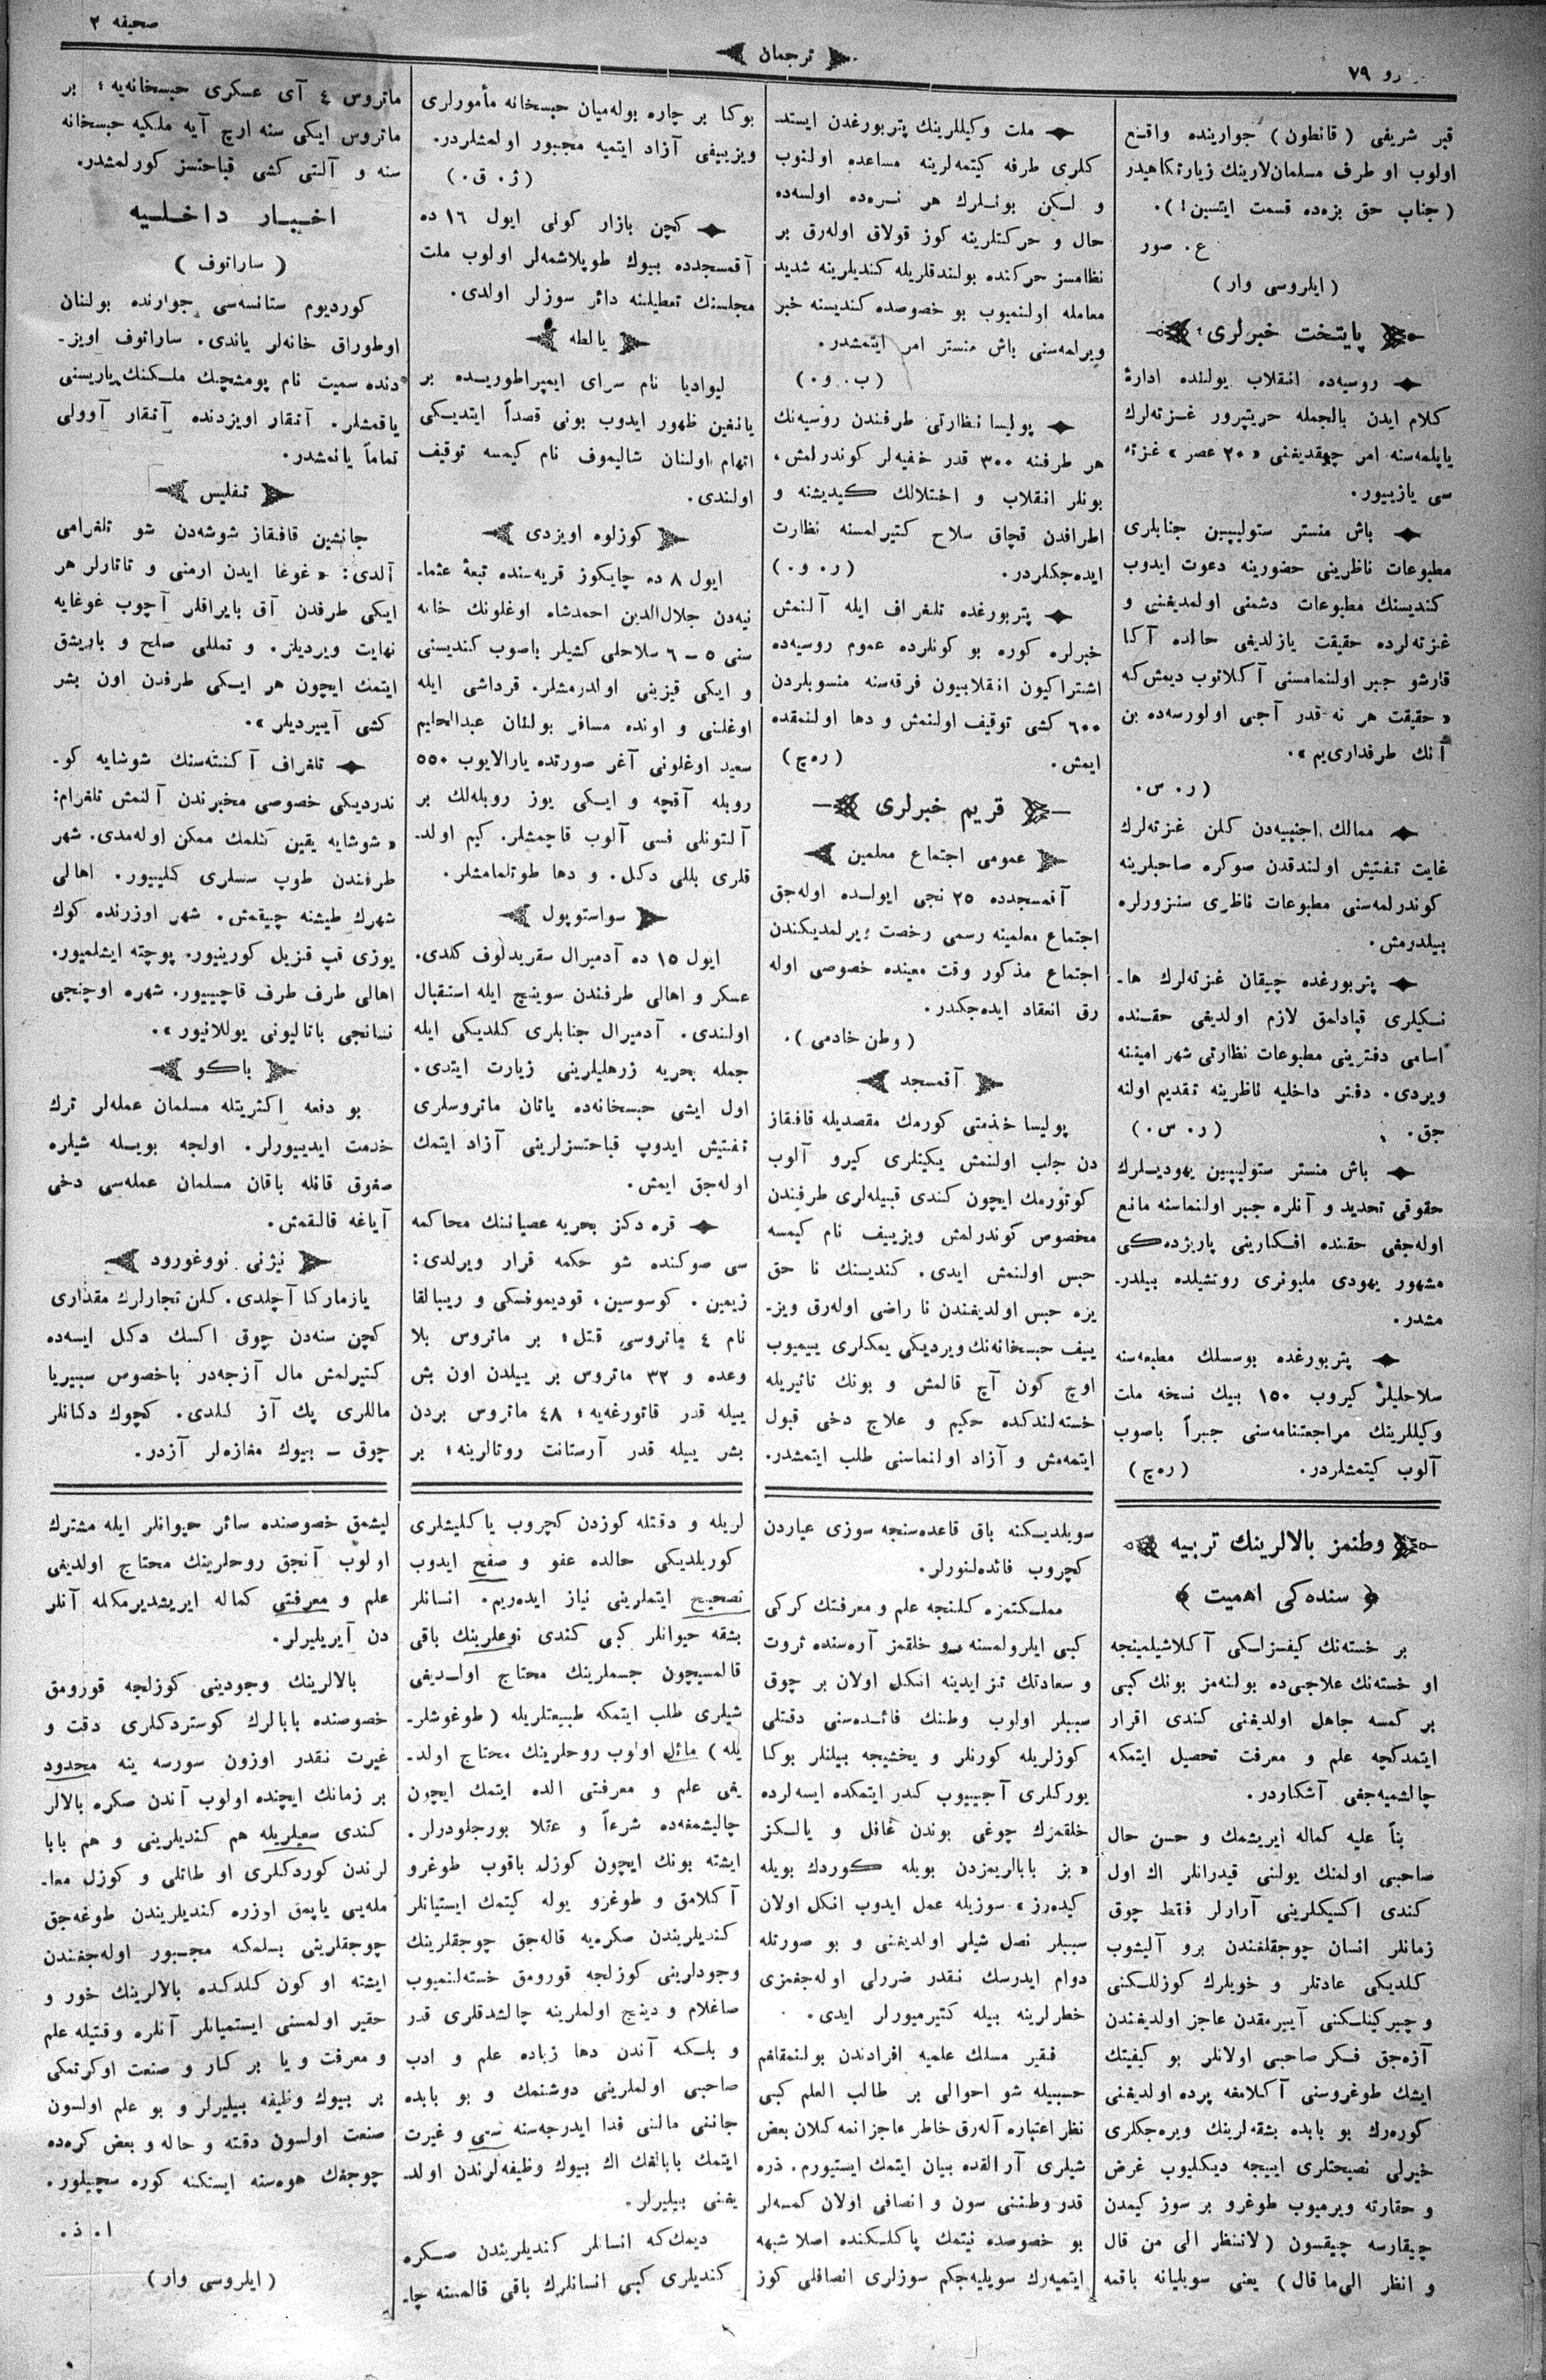 صحیفه ۲
ترجمان
رو ۷۹
قبر شریفی (قانطون) جوارینده واقع
اولوب او طرف مسلمان‌لارینك زیارتكاهیدر
(جناب حق بزه‌ده قسمت ایتسین!).
ع. صور
(ایلروسی وار)
پایتخت خبرلری
روسیه‌ده انقلاب یولنده ادارۀ
كلام ایدن بالجمله حریتپرور غـزته‌لرك
یاپلمه‌سنه امر چیقدیغنی «۲۰ عصر» غزته
سی یازییور.
باش منستر ستولیپین جنابلری
مطبوعات ناظرینی حضورینه دعوت ایدوب
كندیسنك مطبوعات دشمنی اولمدیغنـی و
غزته‌لرده حقیقت یازلدیغی حالده آكا
قارشو جبر اولنمامسنی آكلاتوب دیمش‌كه
«حقیقت هر نه قدر آجی اولورسه‌ده بن
آنك طرفداری‌یم».
(ر. س.
ممالك اجنبیه‌دن كلن غزته‌لرك
غایت تفتیش اولندقدن صوكره صاحبلرینه
كوندرلمه‌سنی مطبوعات ناظری سنزورلره
بیلدرمش.
پتربورغده چیقان غزته‌لرك ها-
نـكیلری قپادلمق لازم اولدیغی حقـنده
اسامی دفترینی مطبوعات نظارتی شهر امیننه
ویردی. دفتر داخلیه ناظرینه تقدیم اولنه
جق. (ر. س.)
باش منستر ستولیپین یهودیـلرك
حقوقی تحدید و آنلره جبر اولنماسنه مانع
اوله‌جغی حقنده افـكارینی پاریزده‌كی
مشهور یهودی ملیونری روتشیلده بیلدر-
مشدر.
پتربورغده بوسسلك مطبعه‌سنه
سلاحلیلر كیروب ۱۵۰ بیك نسخه ملت
وكیللرینك مراجعتنامه‌سنی جبراً باصوب
آلوب كیتمشلردر. (ره چ)
ملت وكیللرینك پتربورغدن ایستد-
كلری طرفه كیتمه‌لرینه مساعده اولنوب
و لـكن بونـلرك هر نـره‌ده اولسه‌ده
حال و حركتلرینه كوز قولاق اوله‌رق بر
نظامسز حركتده بولندقلریله كندیلرینه شدید
معامله اولنمیوب بو خصوصده كندیسنه خبر
ویرلمه‌سنی باش منستر امر ایتمشدر.
(ب. و.)
پولیسا نظارتی طرفندن روسیه‌نك
هر طرفنه ۳۰۰ قدر خفیه‌لر كوندرلمش.
بونلر انقلاب و اختلالك كیدیشنه و
اطرافدن قچاق سلاح كتیرلمسنه نظارت
ایده‌جكلردر. (ر. و.)
پتربورغده تلغراف ایله آلنمش
خبرلره كوره بو كونلرده عموم روسیه‌ده
اشتراكیون انقلابیون فرقه‌سنه منسوبلردن
۶۰۰ كشی توقیف اولنمش و دها اولنمقده
ایمش. (ره چ)
قریم خبرلری
عمومی اجتماع معلمین
آقمسجدده ۲۵ نجی ایولـده اوله‌جق
اجتماع معلمینه رسمی رخصت ویرلمدیكندن
اجتماع مذكور وقت معینده خصوصی اوله
رق انعقاد ایده‌جكدر.
(وطن خادمی).
آقمسجد
پولیسا خذمتی كورمك مقصدیله قافقاز
دن جلب اولنمش یكیتلری كیرو آلوب
كوتورمك ایچون كندی قبیله‌لری طرفندن
مخصوص كوندرلمش ویزییف نام كیمسه
حبس اولنمش ایدی. كندیسنك نا حق
یره حبس اولدیغندن نا راضی اوله‌رق ویز-
ییف حبسخانه‌نك ویردیكی یمكلری ییمیوب
اوچ كون آچ قالمش و بونك تاثیریله
خسته‌لندكده حكیم و علاج دخی قبول
ایتمه‌مش و آزاد اولنماسنی طلب ایتمشدر.
بوكا بر چاره بوله‌میان حبسخانه مأمورلری
ویزییفی آزاد ایتمیه مجبور اولمشلردر.
(ژ. ق.)
كچن بازار كونی ایول ۱۶ ده
آقمسجدده بیوك طوپلاشمه‌لر اولوب ملت
مجلسنك تعطیلنه دائر سوزلر اولدی.
یالطه
لیوادیا نام سرای ایمپراطوریـده بر
یانغین ظهور ایدوب بونی قصداً ایتدیـكی
اتهام اولنان شالیموف نام كیمسه توقیف
اولندی.
كوزلوه اویزدی
ایول ۸ ده چایكوز قریه‌سنده تبعۀ عثما-
نیه‌دن جلال‌الدین احمدشاه اوغلونك خانه
سنی ۵ – ۶ سلاحلی كشیلر باصوب كندیسنی
و ایكی قیزینی اولدرمشلر. قرداشی ایله
اوغلنی و اونده مسافر بولنان عبدالحلیم
سعید اوغلونی آغر صورتده یارالایوب ۵۵۰
روبله آقچه و ایـكی یوز روبله‌لك بر
آلتونلی فسی آلوب قاچمشلر. كیم اولد-
قلری بللی دكل. و دها طوتلمامشلر.
سواستوپول
ایول ۱۵ ده آدمیرال سقریدلوف كلدی.
عسكر و اهالی طرفندن سوینچ ایله استقبال
اولندی. آدمیرال جنابلری كلدیكی ایله
جمله بحریه زرهلیلرینی زیارت ایتدی.
اول ایشی حبسخانه‌ده یاتان ماتروسلری
تفتیش ایدوپ قباحتسزلرینی آزاد ایتمك
اوله‌جق ایمش.
قره دكز بحریه عصیاننك محاكمه
سی صوكنده شو حكمه قرار ویرلدی:
زیمین. كوسوسین، قودیموفسكی و ریبالقا
نام ۴ ماتروسی قتل؛ بر ماتروس بلا
وعده و ۳۲ ماتروس بر ییلدن اون بش
ییله قدر قاتورغه‌یه؛ ۴۸ ماتروس بردن
بشر ییله قدر آرستانت روتالرینه؛ بر
ماتروس ۴ آی عسكری حبسخانه‌یه؛ بر
ماتروس ایكی سنه اوچ آیه ملكیه حبسخانه
سنه و آلتی كشی قباحتسز كورلمشدر.
اخـبـار داخـلـیه
(ساراتوف)
كوردیوم ستانسه‌سی جوارنده بولنان
اوطوراق خانه‌لر یاندی. ساراتوف اویز-
دنده سمیت نام پومشچیك ملـكنك یاریسنی
یاقمشلر. آتقار اویزدنده آتقار آوولی
تماماً یانمشدر.
تفلیس
جانشین قافقاز شوشه‌دن شو تلغرامی
آلدی: «غوغا ایدن ارمنی و تاتارلر هر
ایكی طرفدن آق بایراقلر آچوب غوغایه
نهایت ویردیلر. و تمللی صلح و باریشق
ایتمك ایچون هر ایـكی طرفدن اون بشر
كشی آییردیلر».
تلغراف آكنته‌سنك شوشایه كو-
ندردیكی خصوصی مخبرندن آلنمش تلغرام:
«شوشایه یقین كلمك ممكن اوله‌مدی. شهر
طرفندن طوپ سسلری كلییور. اهالی
شهرك طیشنه چیقمش. شهر اوزرنده كوك
یوزی قپ قزیل كورینیور. پوچته ایشلمیور.
اهالی طرف طرف قاچییور. شهره اوچنجی
نسانجی باتالیونی یوللانیور».
باكو
بو دفعه اكثریتله مسلمان عمله‌لر ترك
خدمت ایدییورلر. اولجه بویـله شیلره
صغوق قانله باقان مسلمان عمله‌سی دخی
آیاغه قالقمش.
نیژنی نووغورود
یازمارکا آچلدی. كلن تجارلرك مقداری
كچن سنه‌دن چوق اكسك دكل ایسه‌ده
كتیرلمش مال آزجه‌در باخصوص سیبیریا
ماللری پك آز كلدی. كچوك دكانلر
چوق – بیوك مغازه‌لر آزدر.
وطنمز بالالرینك تربیه
سنده‌كی اهمیت
بر خسته‌نك كیفسزلـكی آكلاشیلمینجه
او خسته‌نك علاجی‌ده بولنه‌مز بونك كبی
بر كمسه جاهل اولدیغنی كندی اقرار
ایتمدكچه علم و معرفت تحصیل ایتمكه
چالشمیه‌جغی آشكاردر.
بناً علیه كماله ایریشمك و حسن حال
صاحبی اولمنك یولنی قیدرانلر اك اول
كندی اكسیكلرینی آرارلر فقط چوق
زمانلر انسان چوجقلغندن برو آلیشوب
كلدیكی عادتلر و خویلرك كوزللـكنی
و چیركینلـكنی آییرمقدن عاجز اولدیغندن
آزه‌جق فـكر صاحبی اولانلر بو كیفیتك
ایشك طوغروسنی آكلامغه پرده اولدیغنی
كوره‌رك بو بابده بشقه‌لرینك ویره‌جكلری
خیرلی نصیحتلری اییجه دیكلیوب غرض
و حقارته ویرمیوب طوغرو بر سوز كیمدن
چیقارسه چیقسون (لاتنظر الی من قال
و انظر الی‌ما قال) یعنی سویلیانه باقمه
سویلدیـكنه باق قاعده‌سنجه سوزی عیاردن
كچروب فائده‌لنورلر.
مملـكتمزه كلنجه علم و معرفتك كركی
كبی ایلرولمسنه و خلقمز آره‌سنده ثروت
و سعادتك تزایدینه انكل اولان بر چوق
سببلر اولوب وطنك فائـده‌سنی دقتلی
كوزلریله كورنلر و یخشیجه بیلنلر بوكا
یوركلری آجییوب كدر ایتمكده ایسه‌لرده
خلقمزك چوغی بوندن غافل و یالـكز
«بز بابالریمزدن بویله كوردك بویله
كیده‌رز» سوزیله عمل ایدوب انكل اولان
سببلر نصل شیلر اولدیغنی و بو صورتله
دوام ایدرسك نقدر ضررلی اوله‌جغمزی
خطرلرینه بیله كتیرمیورلر ایدی.
فقیر مسلك علمیه افرادندن بولنمقلغم
حسبیله شو احوالی بر طالب العلم كبی
نظر اعتباره آله‌رق خاطر عاجزانمه كلان بعض
شیلری آرالقده بیان ایتمك ایستیورم. ذره
قدر وطننی سون و انصافی اولان كمسه‌لر
بو خصوصده نیتمك پاكلـكنده اصلا شبهه
ایتمیه‌رك سویلیه‌جكم سوزلری انصافلی كوز
لریله و دقتله كوزدن كچروب یاكلیشلری
كوریلدیكی حالده عفو و صفح ایدوب
تصحیح ایتملرینی نیاز ایده‌ریم. انسانلر
بشقه حیوانلر كبی كندی نوعلرینك باقی
قالمسیچون جسملرینك محتاج اولـدیغی
شیلری طلب ایتمكه طبیعتلریله (طوغوشلر-
یله) مائل اولوب روحلرینك محتاج اولد-
یغی علم و معرفتی الده ایتمك ایچون
چالیشمغه‌ده شرعاً و عقلا بورجلودرلر.
ایشته بونك ایچون كوزل باقوب طوغرو
آكلامق و طوغرو یوله كیتمك ایستیانلر
كندیلریندن صكره‌یه قاله‌جق چوجقلرینك
وجودلرینی كوزلجه قورومق خسته‌لنمیوب
صاغلام و دینج اولملرینه چالشدقلری قدر
و بلـكه آندن دها زیاده علم و ادب
صاحبی اولملرینی دوشنمك و بو بابده
جاننی مالنی فدا ایدرجه‌سنه سعی و غیرت
ایتمك بابالغك اك بیوك وظیفه‌لرندن اولد-
یغنی بیلیرلر.
دیمك‌كه انسانلر كندیلریندن صكره
كندیلری كبی انسانلرك باقی قالمسنه چا-
لیشمق خصوصنده سائر حیوانلر ایله مشترك
اولوب آنجق روحلرینك محتاج اولدیغی
علم و معرفتی كماله ایریشدیرمكلمه آنلر
دن آیریلیرلر.
بالالرینك وجودینی كوزلجه قورومق
خصوصنده بابالرك كوستردكلری دقت و
غیرت نقدر اوزون سورسه ینه محدود
بر زمانك ایچنده اولوب آندن صكره بالالر
كندی سعیلریله هم كندیلرینی و هم بابا
لرندن كوردكلری او طاتلی و كوزل معا-
مله‌یی یاپمق اوزره كندیلریندن طوغه‌جق
چوجقلرینی بسلمكه مجـبور اوله‌جغندن
ایشته او كون كلدكده بالالرینك خور و
حقیر اولمسنی ایستمیانلر آنلره وقتیله علم
و معرفت و یا بر كار و صنعت اوكرتمكی
بر بیوك وظیفه بیلیرلر و بو علم اولسون
صنعت اولسون دقته و حاله و بعض كره‌ده
چوجغك هوه‌سنه ایستكنه كوره سچیلور.
ا. ذ.
(ایلروسی وار)